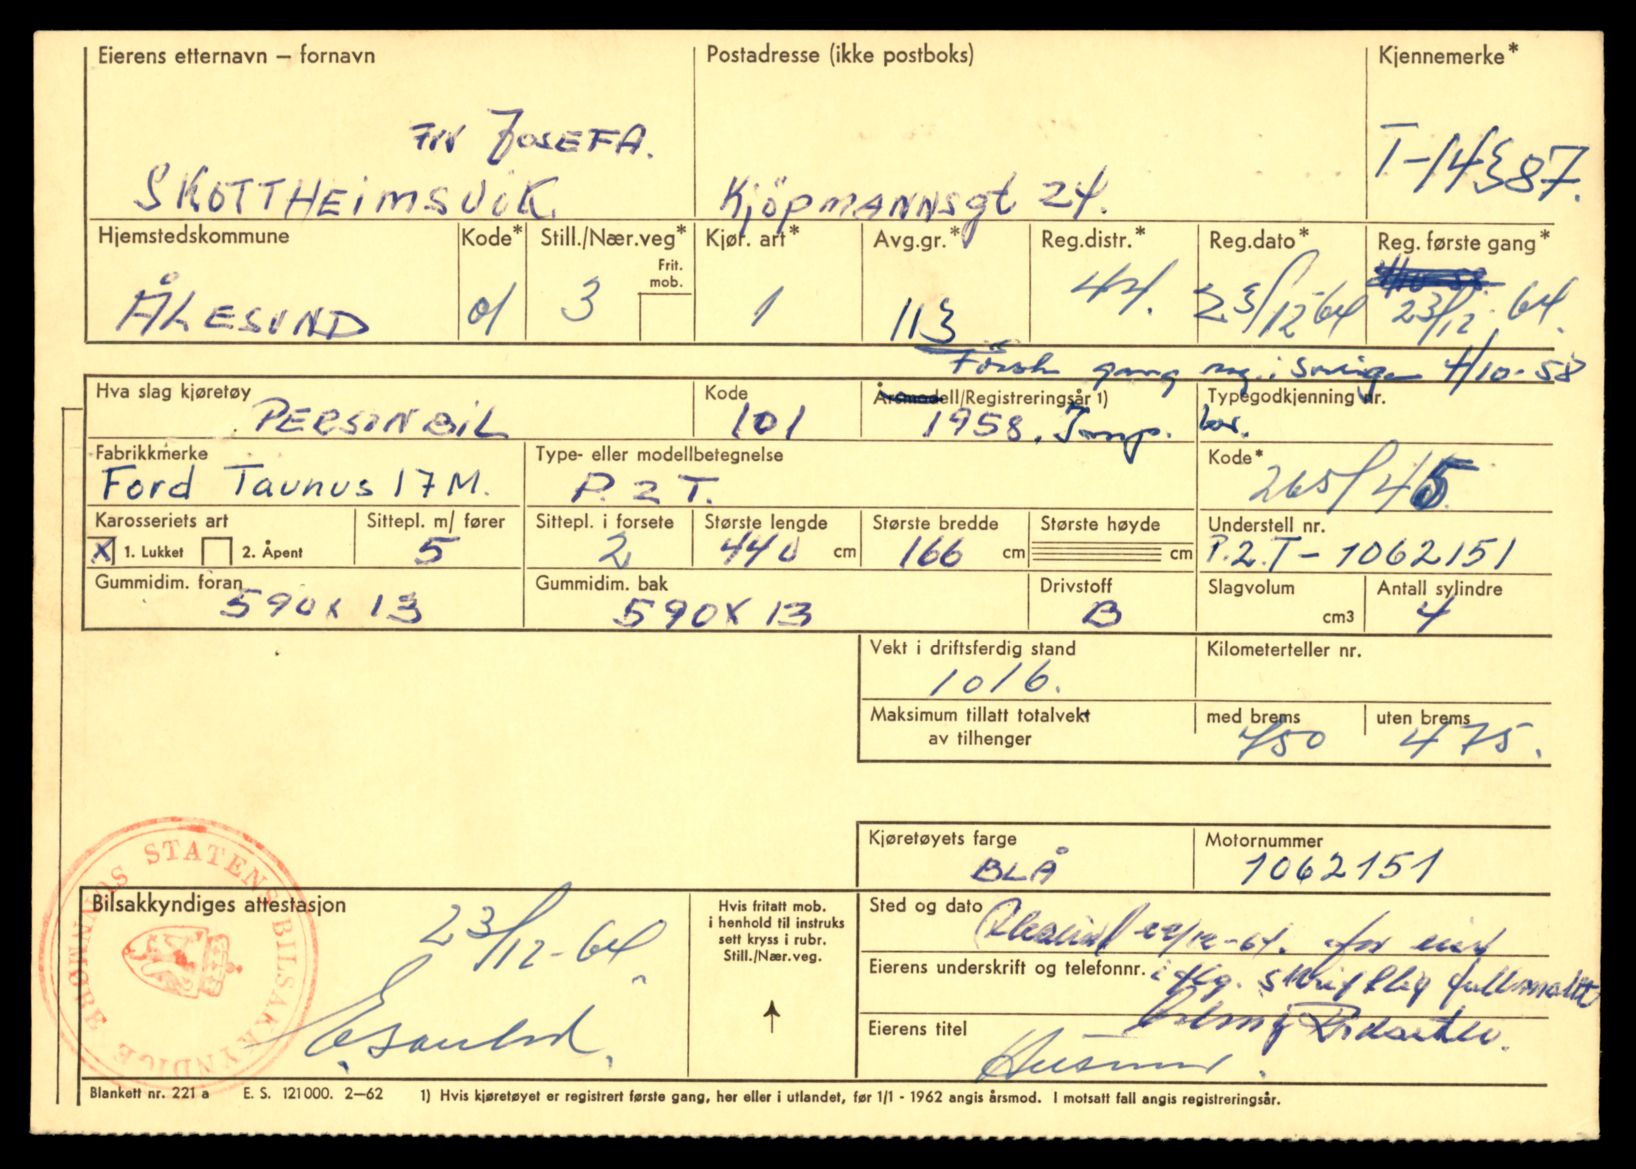 Eierens etternavn – fornavn Postadresse (ikke postboks) Kjennemerke*
JOSEFA. T-14387.
SKOTTHEIMSVIK. Kjöpmannsgt 24.
Hjemstedskommune Kode* Still./Nær.veg* Kjør. art* Avg.gr.* Reg.distr.* Reg.dato* Reg. første gang*
Frit. mob.
ÅLESUND 01 3 1 113 44. 23/12-64 23/12-64.
Först gang reg. i Sverige 4/10-58
Hva slag kjøretøy Kode Årsmodell/Registreringsår 1) Typegodkjenning nr.
PERSONBIL 101 1958. Imp.
Fabrikkmerke Type- eller modellbetegnelse Kode*
Ford Taunus 17M. P. 2 T. 265/45
Karosseriets art Sittepl. m/ fører Sittepl. i forsete Største lengde Største bredde Største høyde Understell nr.
X 1. Lukket 2. Åpent 5 2 440 cm 166 cm cm P.2.T-1062151
Gummidim. foran Gummidim. bak Drivstoff Slagvolum Antall sylindre
590x13 590X13 B cm3 4
Vekt i driftsferdig stand Kilometerteller nr.
1016.
Maksimum tillatt totalvekt av tilhenger med brems uten brems
750 475.
Kjøretøyets farge Motornummer
BLÅ 1062151
STATENS BILSAKKYNDIGE
Bilsakkyndiges attestasjon Hvis fritatt mob. Sted og dato
i henhold til instruks
sett kryss i rubr.
Still./Nær.veg.
23/12-64 Ålesund for
Eierens underskrift og telefonnr. skriftlig fullmakt
Eierens titel
Husmor.
Blankett nr. 221 a E. S. 121000. 2–62 1) Hvis kjøretøyet er registrert første gang, her eller i utlandet, før 1/1 - 1962 angis årsmod. I motsatt fall angis registreringsår.